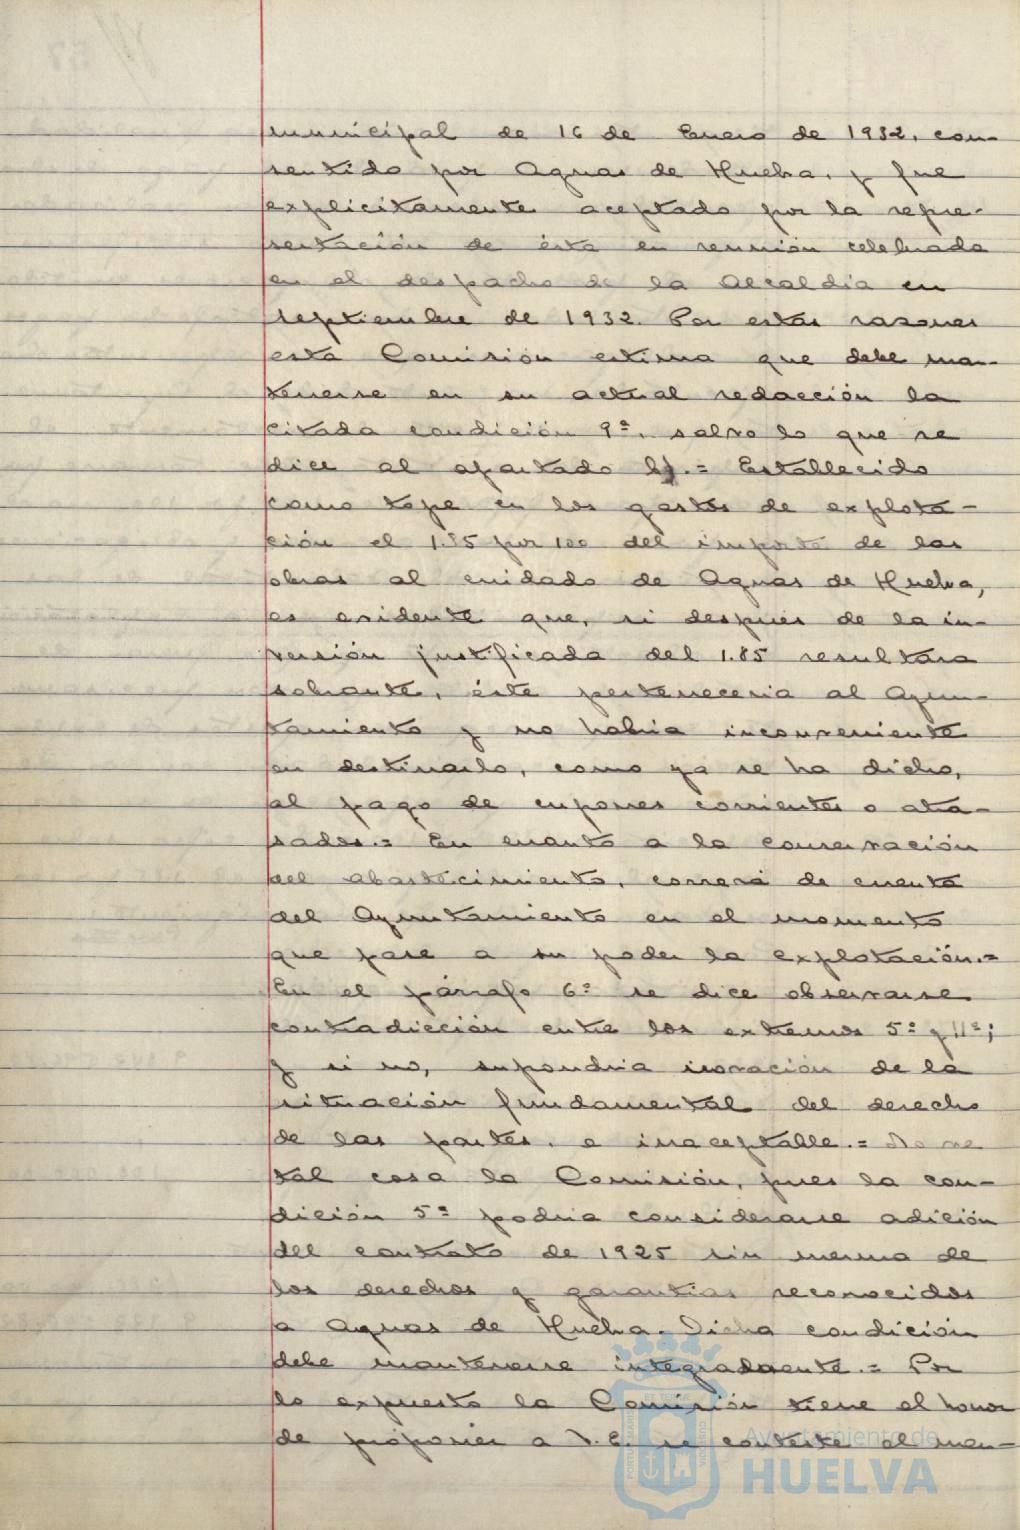 municipal de 16 de Enero de 1932, con-
sentido por Aguas de Huelva, y fue
explicitamente aceptado por la repre-
sentación de ésta en reunión celebrada
en el despacho de la Alcaldia en
septiembre de 1932. Por estas razones
esta Comisión estima que debe man-
tenerse en su actual redacción la
citada condición 9ª, salvo lo que se
dice al apartado b).= Establecido
como tope en los gastos de explota-
ción el 1.85 por 100 del importe de las
obras al cuidado de Aguas de Huelva,
es evidente que, si después de la in-
versión justificada del 1.85 resultara
sobrante, éste perteneceria al Ayun-
tamiento y no habria inconveniente
en destinarlo, como ya se ha dicho,
al pago de cupones corrientes o atra-
sados.= En cuanto a la conservación
del abastecimiento, correrá de cuenta
del Ayuntamiento en el momento
que pase a su poder la explotación.=
En el párrafo 6º se dice observarse
contradicción entre los extremos 5º y 11º;
y si no, supondria inovación de la
situación fundamental del derecho
de las partes, e inaceptable.= No ve
tal cosa la Comisión, pues la con-
dición 5ª podria considerarse adición
del contrato de 1925 sin merma de
los derechos y garantias reconocidos
a Aguas de Huelva. Dicha condición
debe mantenerse integradaente.= Por
lo expuesto la Comisión tiene el honor
de proponer a V.E. se conteste al men-
Ayuntamiento de
HUELVA